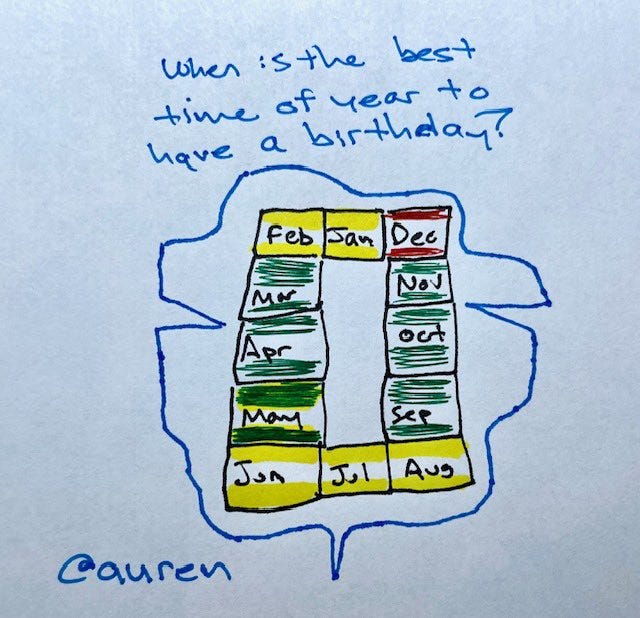 When is the best
time of year to
have a birthday?
Feb Jan Dec
Mar Nov
Apr Oct
May Sep
Jun Jul Aug
@auren